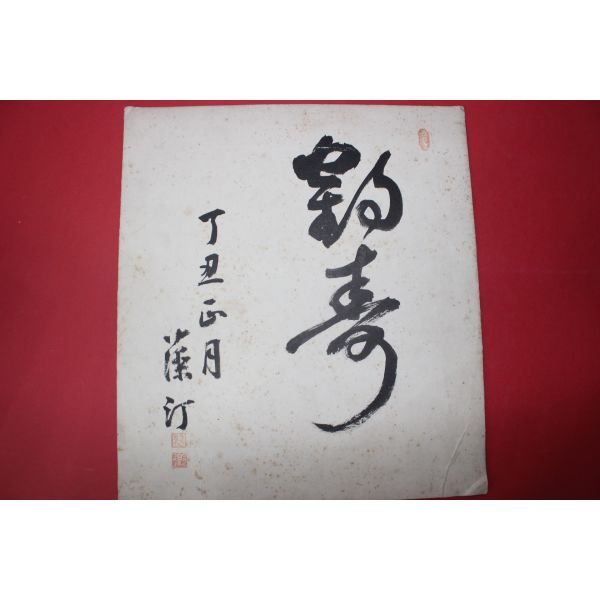 鶴壽
丁丑正月
藻汀